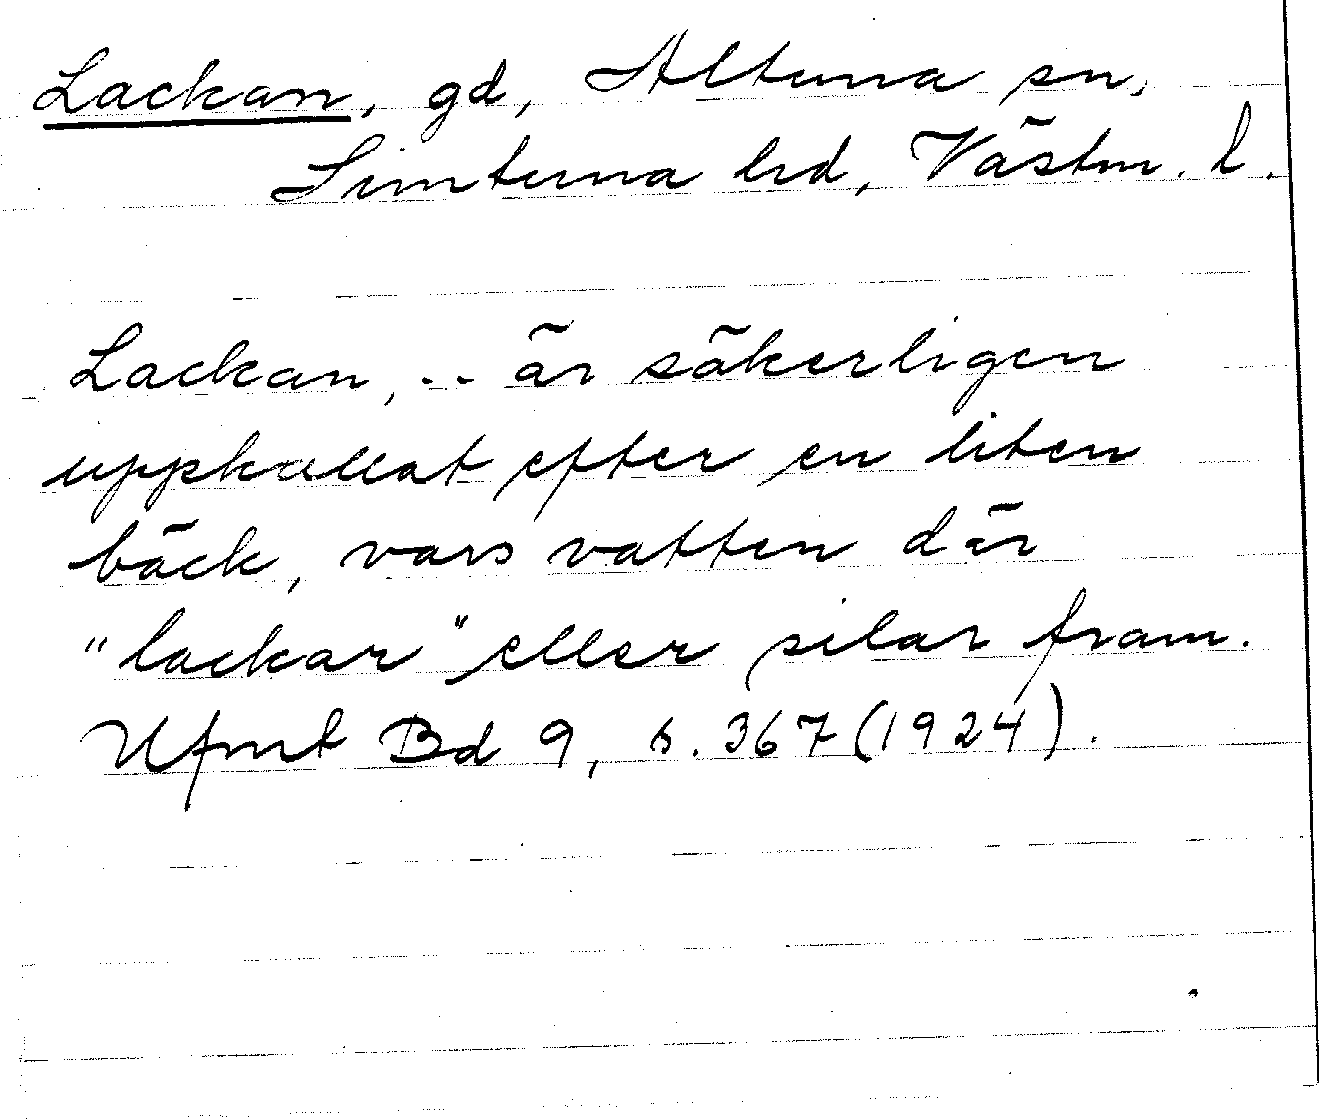 Lackan, gd, Altuna sn,
Simtuna hd, Västm. l.
Lackan, .. är säkerligen
uppkallat efter en liten
bäck, vars vatten där
"lackar" eller silar fram.
Ufmt Bd 9, s. 367 (1924).